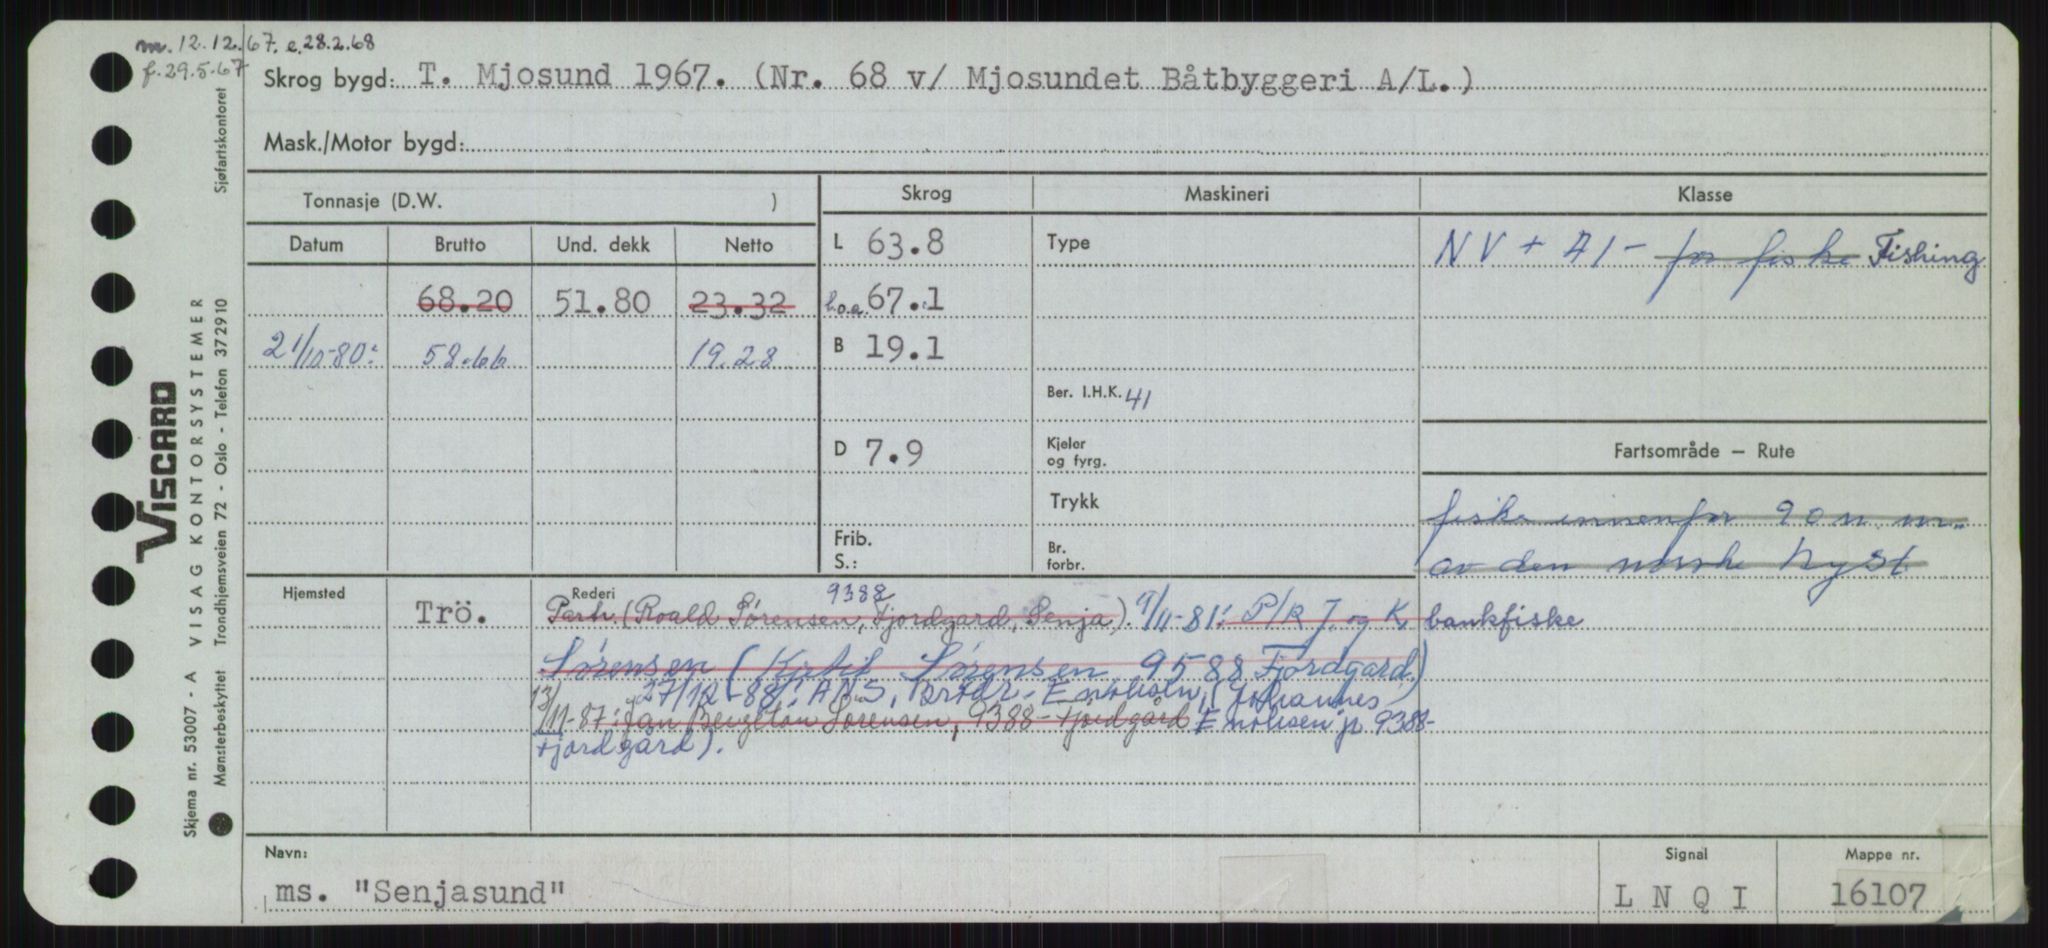 m. 12.12.67. e. 28.2.68
f. 29.5.67
Skrog bygd: T. Mjosund 1967. (Nr. 68 v/ Mjosundet Båtbyggeri A/L.)
Mask./Motor bygd:
Tonnasje (D.W. )
Skrog Maskineri Klasse
Datum Brutto Und. dekk Netto
L 63.8 Type NV + A1 - for fiske Fishing
68.20 51.80 23.32 l.o.a. 67.1
21/10-80: 58.66 19.28 B 19.1
Ber. I.H.K. 41
D 7.9 Kjeler og fyrg. Fartsområde – Rute
Trykk fiske innenfor 90 n. m.
Frib. S.: Br. forbr. av den norske kyst.
Hjemsted Trö. Rederi 9388
Partr. (Roald Sørensen, Fjordgard, Senja). 9/11-81: P/R J. og K. bankfiske
Sørensen (Kjetil Sørensen 9588 Fjordgard)
27/12-88: ANS, Brødr. Enoksen, (Johannes
13/11-87: Jan Bengtson Sørensen, 9388 - Fjordgård Enoksen jr 9388-
Fjordgård).
Navn: ms. "Senjasund"
Signal L N Q I
Mappe nr. 16107
VISCARD
VISAG KONTORSYSTEMER
Sjøfartskontoret
Skjema nr. 53007 - A
Mønsterbeskyttet Trondhjemsveien 72 - Oslo - Telefon 372910